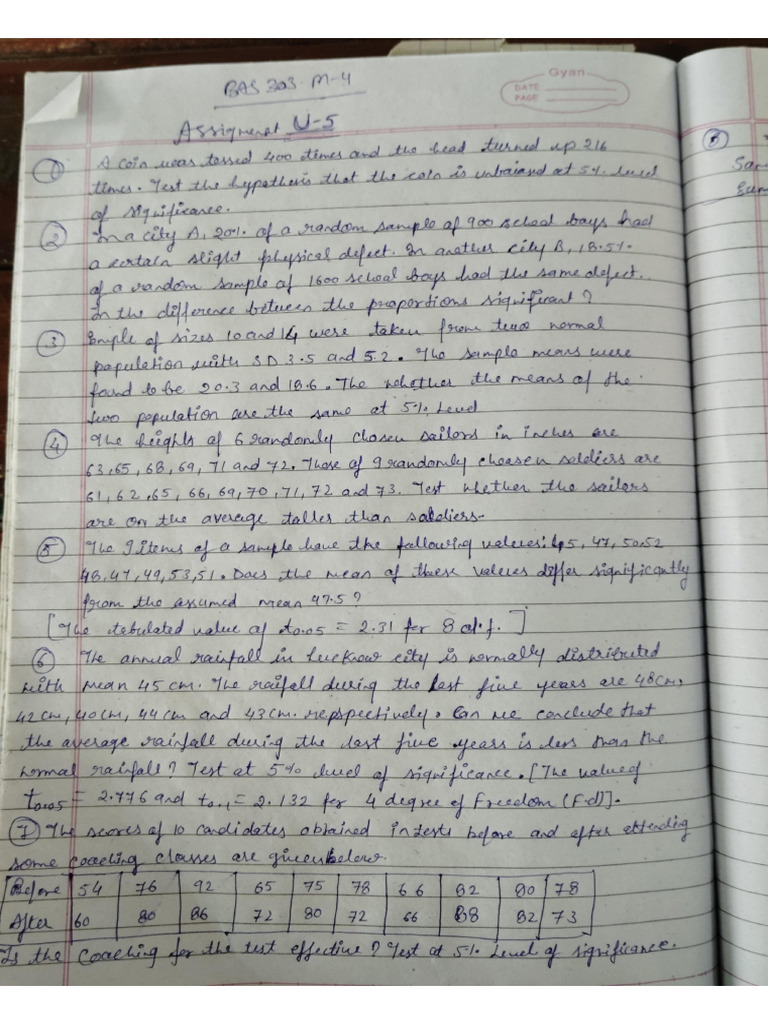 BAS 303 M-4
Gyan
DATE
PAGE
Assigment U-5
① A coin was tossed 400 times and the head turned up 216
times. Test the hypothesis that the coin is unbaiand at 5% level
of significance.
② In a city A, 20% of a random sample of 900 school bays had
a certain slight physical defect. In another city B, 18.5%
of a random sample of 1600 school bays had the same defect.
In the difference between the proportions significant?
③ Smple of sizes 10 and 14 were taken from two normal
population with SD 3.5 and 5.2. The sample means were
found to be 20.3 and 18.6. The whether the means of the
two population are the same at 5% level
④ The heights of 6 randomly chosen sailors in inches are
63,65, 68, 69, 71 and 72. Those of 9 randomly choosen soldiers are
61, 62, 65, 66, 69, 70, 71, 72 and 73. Test whether the sailors
are on the average taller than soldiers.
⑤ The 9 items of a sample have the following values: 45, 47, 50, 52
48, 47, 49, 53, 51. Does the mean of these values differ significantly
from the assumed mean 47.5?
[The tabulated value of t0.05 = 2.31 for 8 d.f.]
⑥ The annual rainfall in Lucknow city is normally distributed
with mean 45 cm. The raifall during the last five years are 48cm,
42cm, 40cm, 44cm and 43cm. respectively. Can we conclude that
the average rainfall during the last five years is less than the
normal rainfall? Test at 5% level of significance. [The value of
t0.05 = 2.776 and t0.1 = 2.132 for 4 degree of Freedom (F.d)].
⑦ The scores of 10 candidates obtained in tests before and after attending
some coaching classes are given below.
Before 54 76 92 65 75 78 66 82 80 78
After 60 80 86 72 80 72 66 88 82 73
Is the coaching for the test effective? Test at 5% level of significance.
⑧
Sam